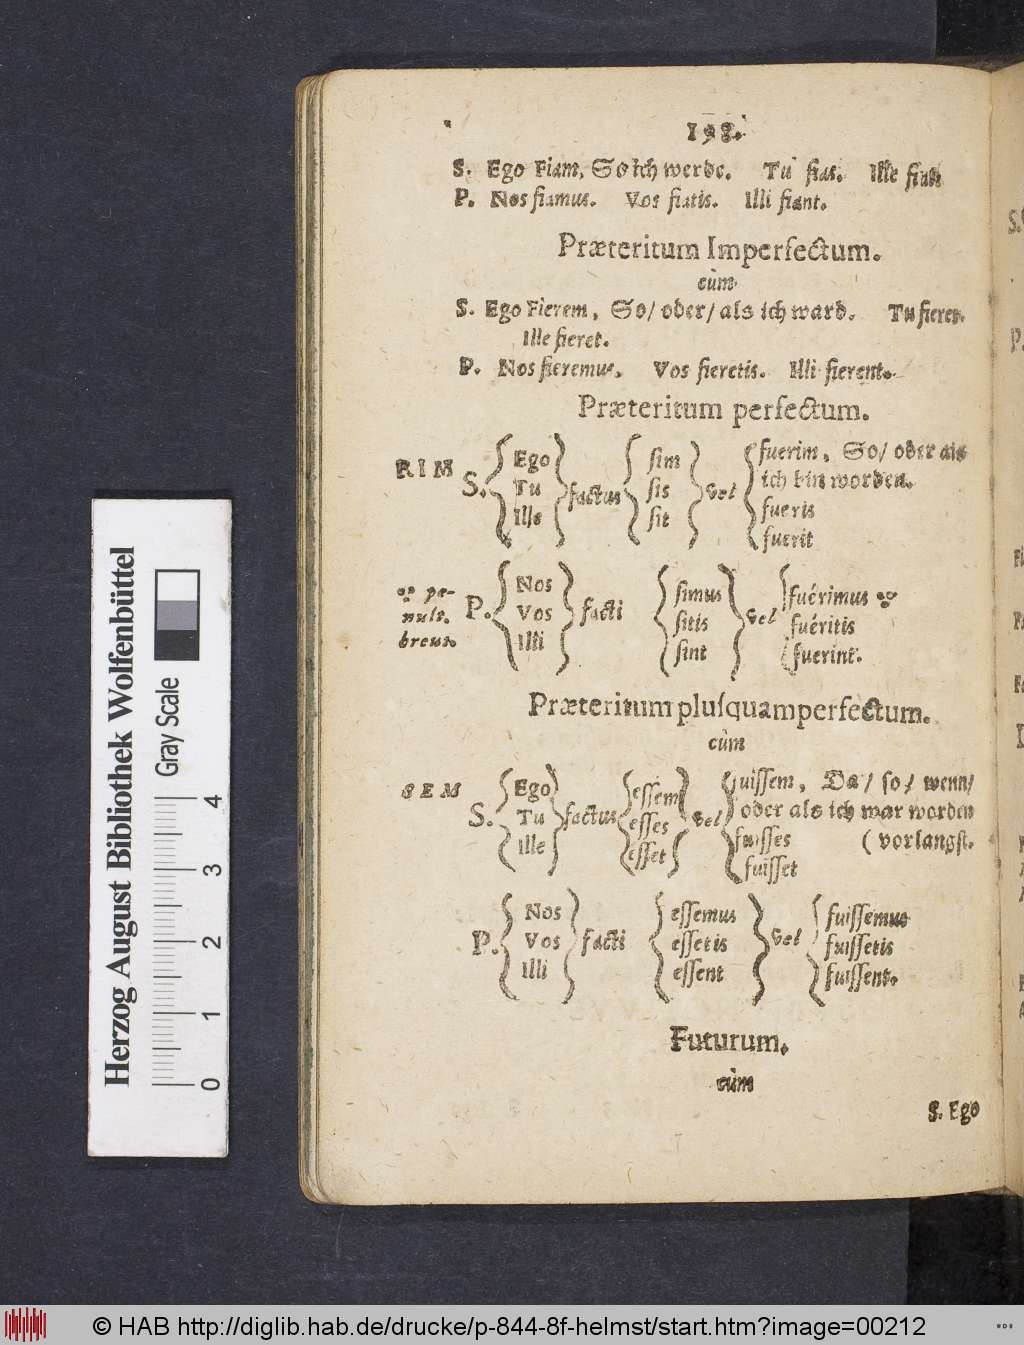 198.
S. Ego Fiam, So ich werde. Tu fias. Ille fiat
P. Nos fiamus. Vos fiatis. Illi fiant.
Præteritum Imperfectum.
cùm
S. Ego Fierem, So/ oder/ als ich ward. Tu fieres.
Ille fieret.
P. Nos fieremus. Vos fieretis. Illi fierent.
Præteritum perfectum.
RIM S. { Ego Tu Ille } factus { sim sis sit } vel { fuerim, So/ oder als
ich bin worden.
fueris
fuerit
penult. breui. P. { Nos Vos Illi } facti { simus sitis sint } vel { fuérimus
fuéritis
fuerint.
Præteritum plusquamperfectum.
cùm
SEM S. { Ego Tu Ille } factus { essem esses esset } vel { uissem, Da/ so/ wenn/
oder als ich war worden
fuisses (vorlangst.
fuisset
P. { Nos Vos Illi } facti { essemus essetis essent } vel { fuissemus
fuissetis
fuissent.
Futurum.
cùm
S. Ego
Herzog August Bibliothek Wolfenbüttel
Gray Scale
0 1 2 3 4
© HAB http://diglib.hab.de/drucke/p-844-8f-helmst/start.htm?image=00212